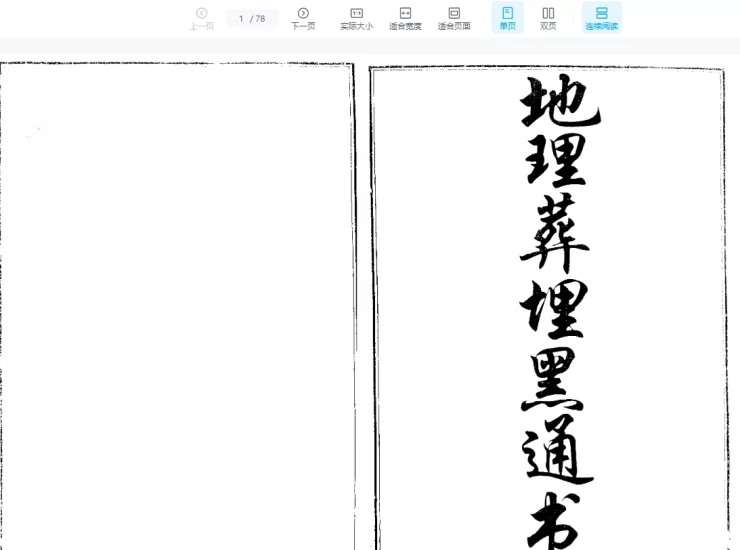 上一页
1 / 78
下一页
实际大小
适合宽度
适合页面
单页
双页
连续阅读
地理葬埋黑通书